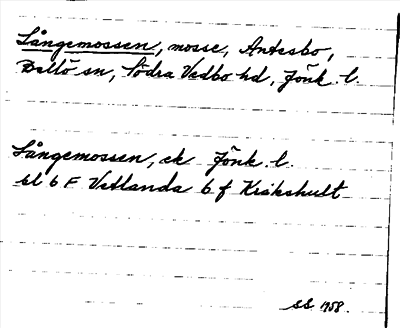 Långemossen, mosse, Antesbo,
Bellö sn, Södra Vedbo hd, Jönk. l.
Långemossen, ek Jönk. l.
bl 6 F Vetlanda 6 f Kråkshult
SS 1958.